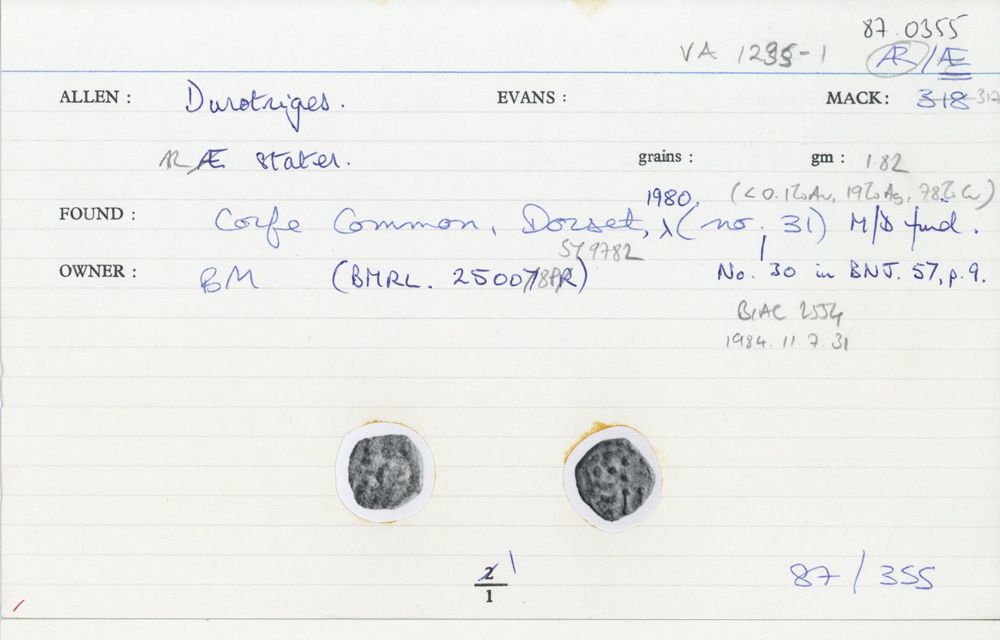 87.0355
VA 1235-1 AR/Æ
ALLEN : Durotriges. EVANS : MACK: 318 317
AR Æ stater. grains : gm : 1.82
1980, (<0.1% Au, 19% Ag, 78% Cu)
FOUND : Corfe Common, Dorset, (no. 31) M/D find.
SY 9782
OWNER : BM (BMRL. 25007 R) No. 30 in BNJ. 57, p.9.
BIAC 2554
1984.11.7.31
2 1
1
87/355